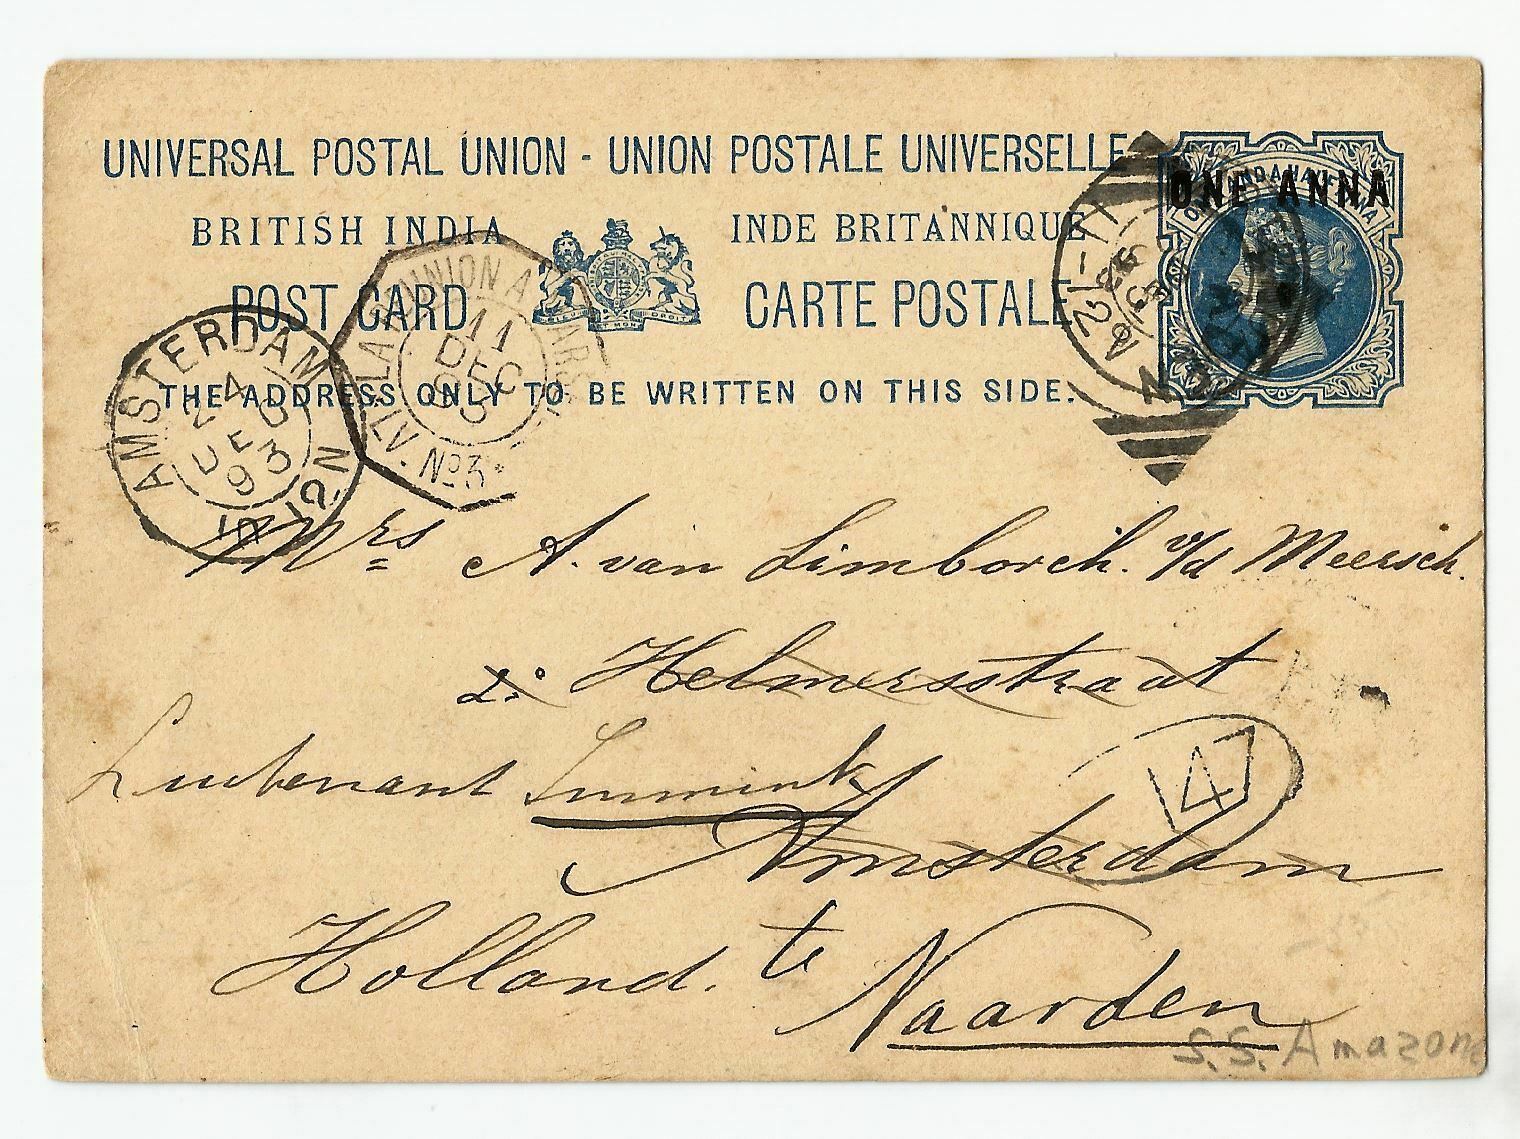 UNIVERSAL POSTAL UNION - UNION POSTALE UNIVERSELLE
ONE ANNA
BRITISH INDIA INDE BRITANNIQUE
POST CARD CARTE POSTALE
THE ADDRESS ONLY TO BE WRITTEN ON THIS SIDE.
LA REUNION A MARS
11
DEC
93
LV. No3
AMSTERDAM
24
DEC
93
12N
Mrs A. van Limborch. v/d Meersch.
2e Helmersstraat
Lieutenant Immink
Amsterdam
147
Holland. te
Naarden
S.S. Amazone